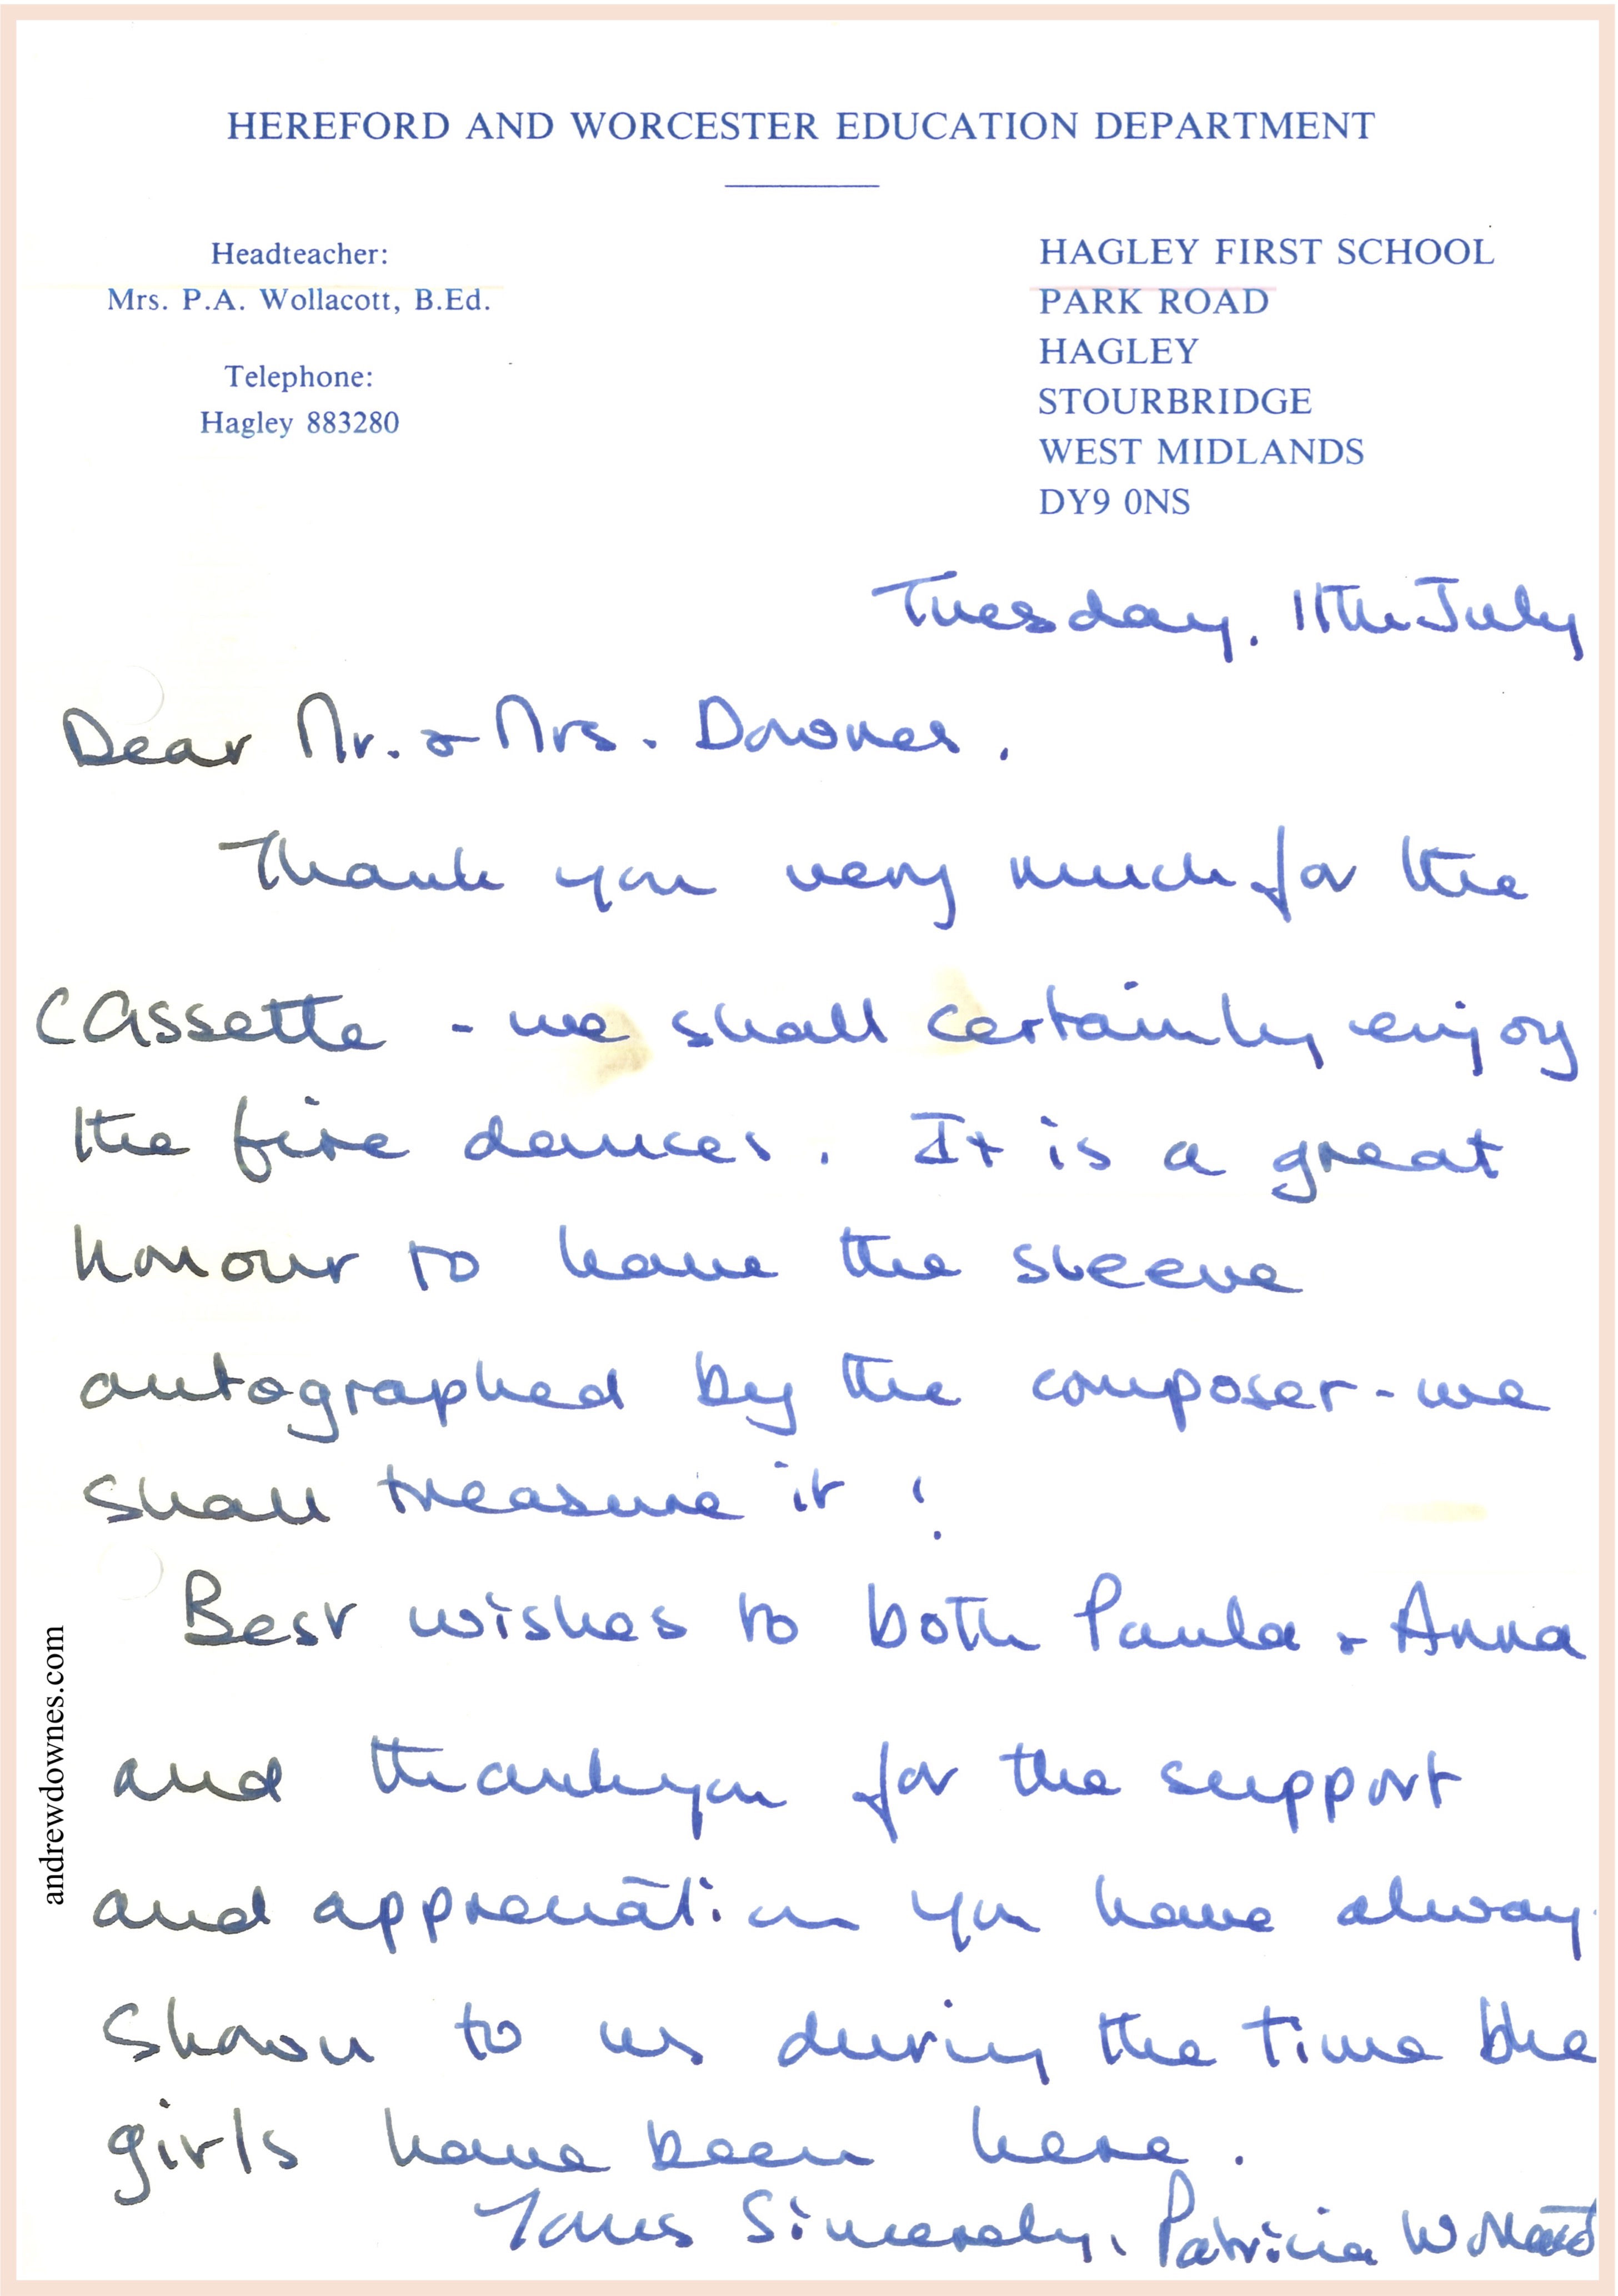 HEREFORD AND WORCESTER EDUCATION DEPARTMENT
Headteacher:
Mrs. P.A. Wollacott, B.Ed.
Telephone:
Hagley 883280
HAGLEY FIRST SCHOOL
PARK ROAD
HAGLEY
STOURBRIDGE
WEST MIDLANDS
DY9 0NS
Tuesday. 11th July
Dear Mr. & Mrs. Downes.
Thank you very much for the
cassette - we shall certainly enjoy
the fire dances. It is a great
honour to have the sleeve
autographed by the composer - we
shall treasure it!
Best wishes to both Paula & Anna
and thankyou for the support
and appreciation you have always
shown to us during the time the
girls have been here.
Yours Sincerely, Patricia Wollacott
andrewdownes.com